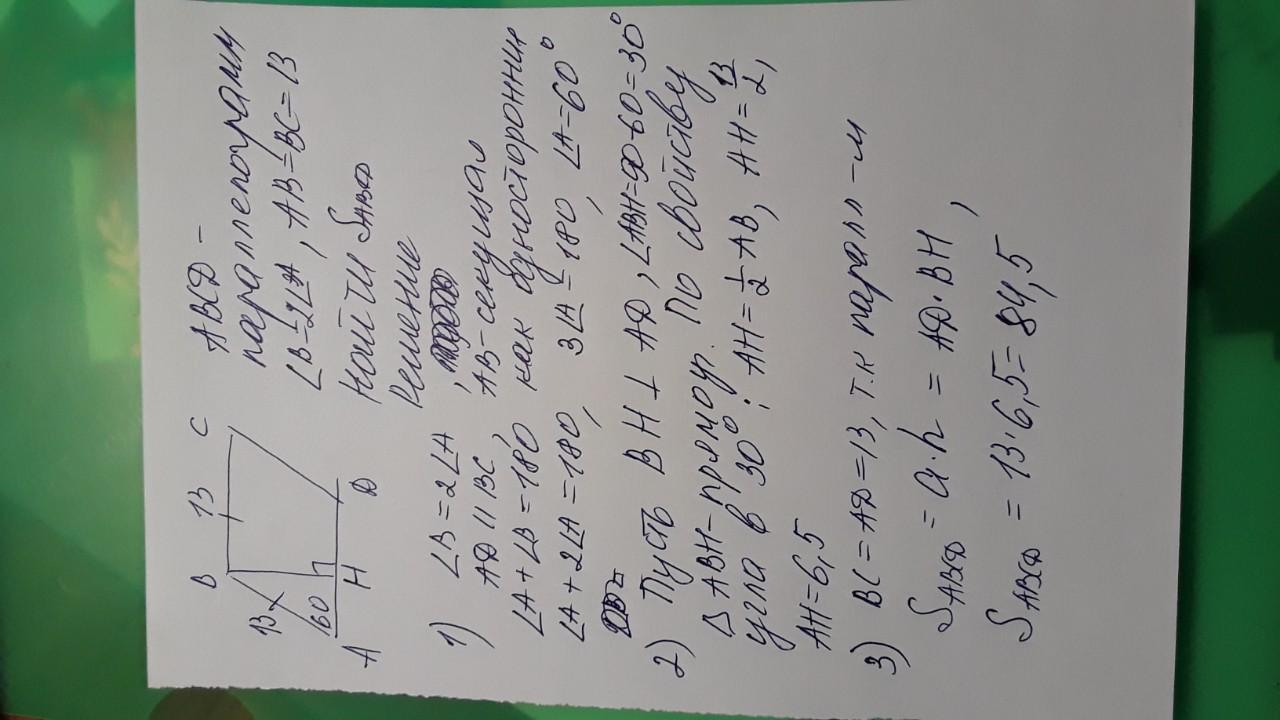 B 13 C
13
60
A H D
ABCD -
параллелограмм
∠B=2∠A, AB=BC=13
Найти S_ABCD
Решение
1) ∠B=2∠A,
AD || BC, AB-секущая
∠A+∠B=180 как односторонние
∠A+2∠A=180, 3∠A=180, ∠A=60°
2) Пусть BH ⊥ AD, ∠ABH=90-60=30°
△ABH-прямоуг. По свойству
угла в 30°: AH=1/2 AB, AH=13/2,
AH=6,5
3) BC=AD=13, т.к паралл-м
S_ABCD = a·h = AD·BH,
S_ABCD = 13·6,5=84,5